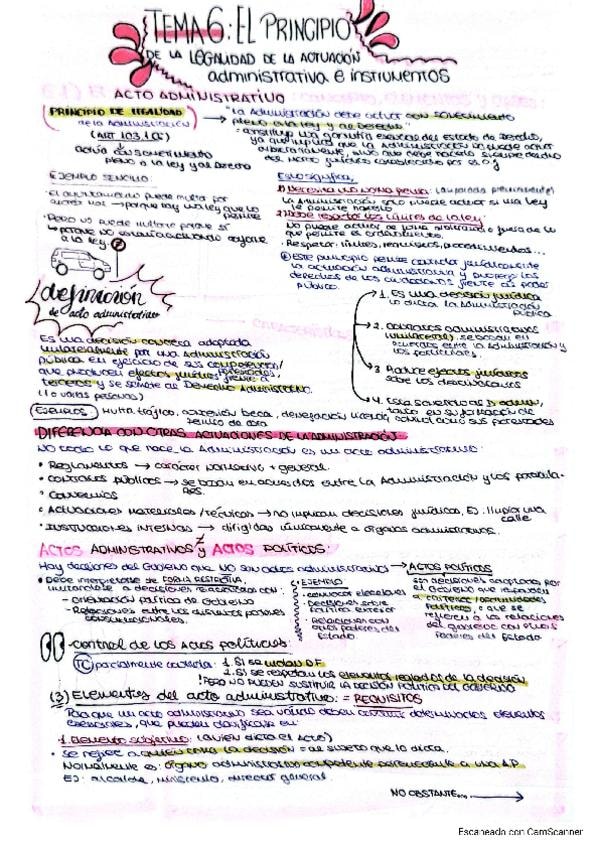 TEMA 6: EL PRINCIPIO
DE LA LEGALIDAD DE LA ACTUACIÓN
administrativa e instrumentos
ACTO ADMINISTRATIVO
PRINCIPIO DE LEGALIDAD
de la Administración
(ART 103.1 CE)
actúa con sometimiento
pleno a la ley y al Derecho
→ "La Administración debe actuar con sometimiento
pleno a la ley y al Derecho"
constituye una garantía esencial del Estado de Derecho,
ya que implica que la Administración no puede actuar
libremente, sino que debe hacerlo siempre dentro
del marco jurídico
EJEMPLO SENCILLO:
porque hay una ley que lo
permite
Pero no puede multarte porque sí
a la ley.
Esto significa:
1) Necesita una norma previa:
La Administración solo puede actuar si una ley
le permite hacerlo
2) Debe respetar los límites de la ley:
No puede actuar de forma arbitraria o fuera de lo
que permite el ordenamiento.
Respetar límites, requisitos, procedimientos...
Este principio permite controlar jurídicamente
la actuación administrativa y protege los
derechos de los ciudadanos frente al poder
público.
definición
de acto administrativo
Es una decisión concreta adoptada
unilateralmente por una Administración
Pública en ejercicio de sus competencias/
potestades,
que producen efectos jurídicos frente a
terceros y se somete al Derecho Administrativo.
(1 o varias personas)
1. Es una decisión jurídica
la dicta la Administración
Pública
2. Contratos administrativos
se basan en
acuerdos entre la Administración y
los particulares.
3. Produce efectos jurídicos
sobre los destinatarios
4. Está sometido al D. admin,
tanto en su formación de
EJEMPLOS: Multa tráfico, concesión beca, denegación licencia,
DIFERENCIA CON OTRAS ACTUACIONES DE LA ADMINISTRACIÓN
NO todo lo que hace la Administración es un acto administrativo:
• Reglamentos → carácter normativo + general.
• contratos públicos → se basan en acuerdos entre la Administración y los particula-
res.
• Convenios
• Actuaciones materiales/técnicas → no implican decisiones jurídicas, EJ: limpiar una
calle
• Instrucciones internas → dirigidas únicamente a órganos administrativos.
ACTOS ADMINISTRATIVOS ≠ y ACTOS POLÍTICOS:
Hay decisiones del Gobierno que NO son actos administrativos → ACTOS POLÍTICOS
• Debe interpretarse de FORMA RESTRICTIVA,
limitándose a decisiones relacionadas con:
- orientación política de Gobierno
- Relaciones entre los diversos poderes
constitucionales.
EJEMPLO
- convocar elecciones
- Decisiones sobre
política exterior
- Relaciones con
otros poderes del
Estado.
son decisiones adoptadas por
el Gobierno que responden
a criterios/oportunidades
políticos, o que se
refieren a las relaciones
del gobierno con otros
Poderes del Estado
control de los Actos políticos:
TC parcialmente controla: 1. Si se vulneran DF.
2. Si se respetan los elementos reglados de la decisión
!PERO NO PUEDEN SUSTITUIR LA DECISIÓN POLÍTICA DEL GOBIERNO
(3) Elementos del acto administrativo: = REQUISITOS
Para que un acto administrativo sea válido deben constar determinados elementos
esenciales, que pueden clasificarse en:
1. Elemento subjetivo: (quién dicta el acto)
• Se refiere a quién toma la decisión = al sujeto que lo dicta.
Normalmente es: órgano administrativo competente perteneciente a una AP
EJ: alcalde, ministerio, director general
NO OBSTANTE... →
Escaneado con CamScanner